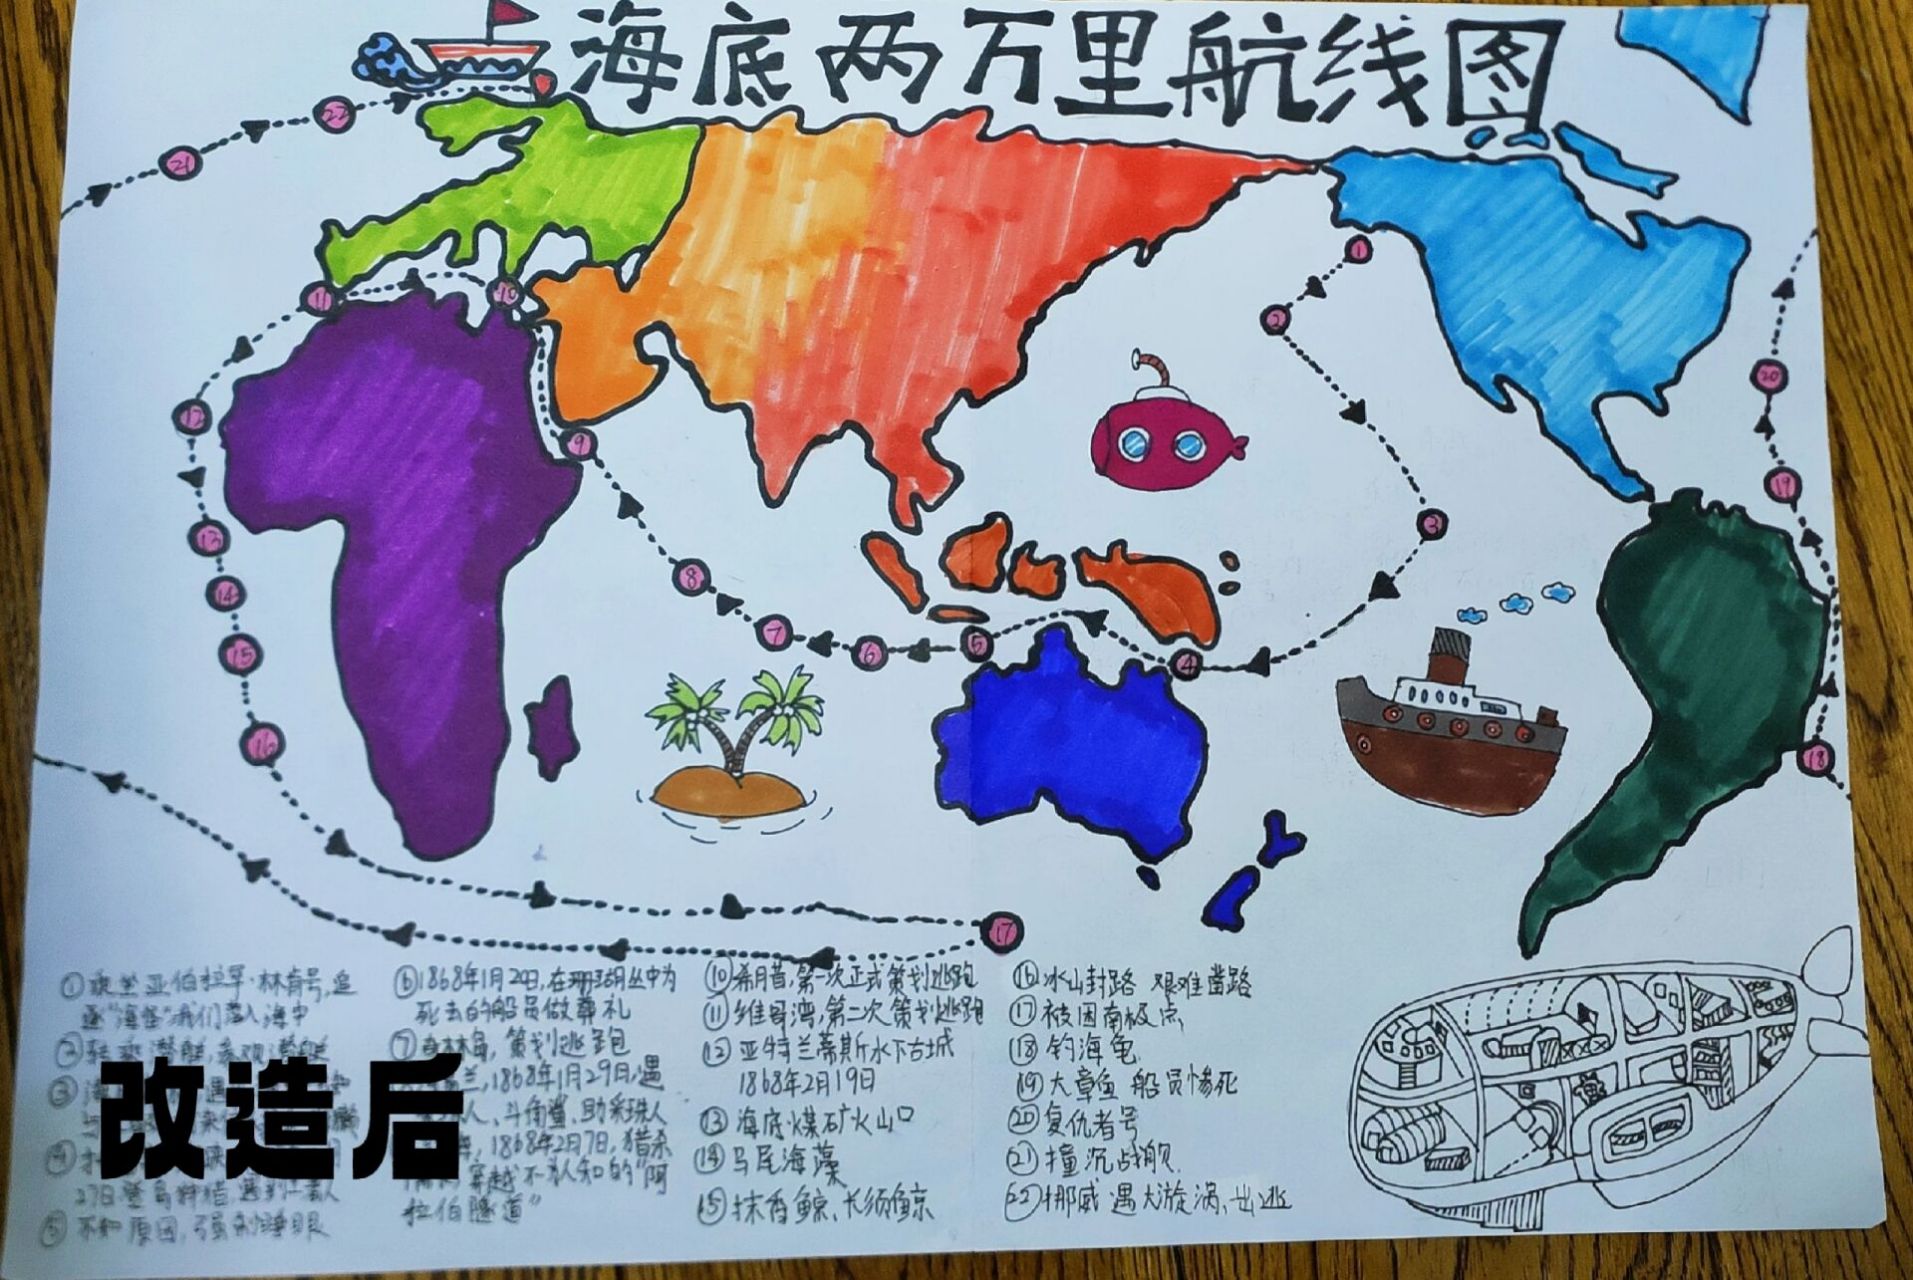 海底两万里航线图
22
21
1
2
11
10
20
12
9
19
3
13
8
14
7
15
6
5
4
16
18
17
①乘坐亚伯拉罕·林肯号,追
逐"海怪"我们落入海中
②转乘潜艇,参观潜艇
③
④
27日登岛狩猎,遇到土著人
⑤不知原因,强制睡眠
⑥1868年1月20日,在珊瑚丛中为
死去的船员做葬礼
⑦ 策划逃跑
兰,1868年1月29日,遇
人、斗角鲨,助采珠人
1868年2月7日,猎杀
穿越不为人知的"阿
拉伯隧道"
⑩希腊,第一次正式策划逃跑
⑪维哥湾,第二次策划逃跑
⑫亚特兰蒂斯水下古城
1868年2月19日
⑬海底煤矿火山口
⑭马尾海藻
⑮抹香鲸、长须鲸
⑯冰山封路 艰难凿路
⑰被困南极点
⑱钓海龟
⑲大章鱼 船员惨死
⑳复仇者号
㉑撞沉战舰
㉒挪威 遇大漩涡,出逃
改造后